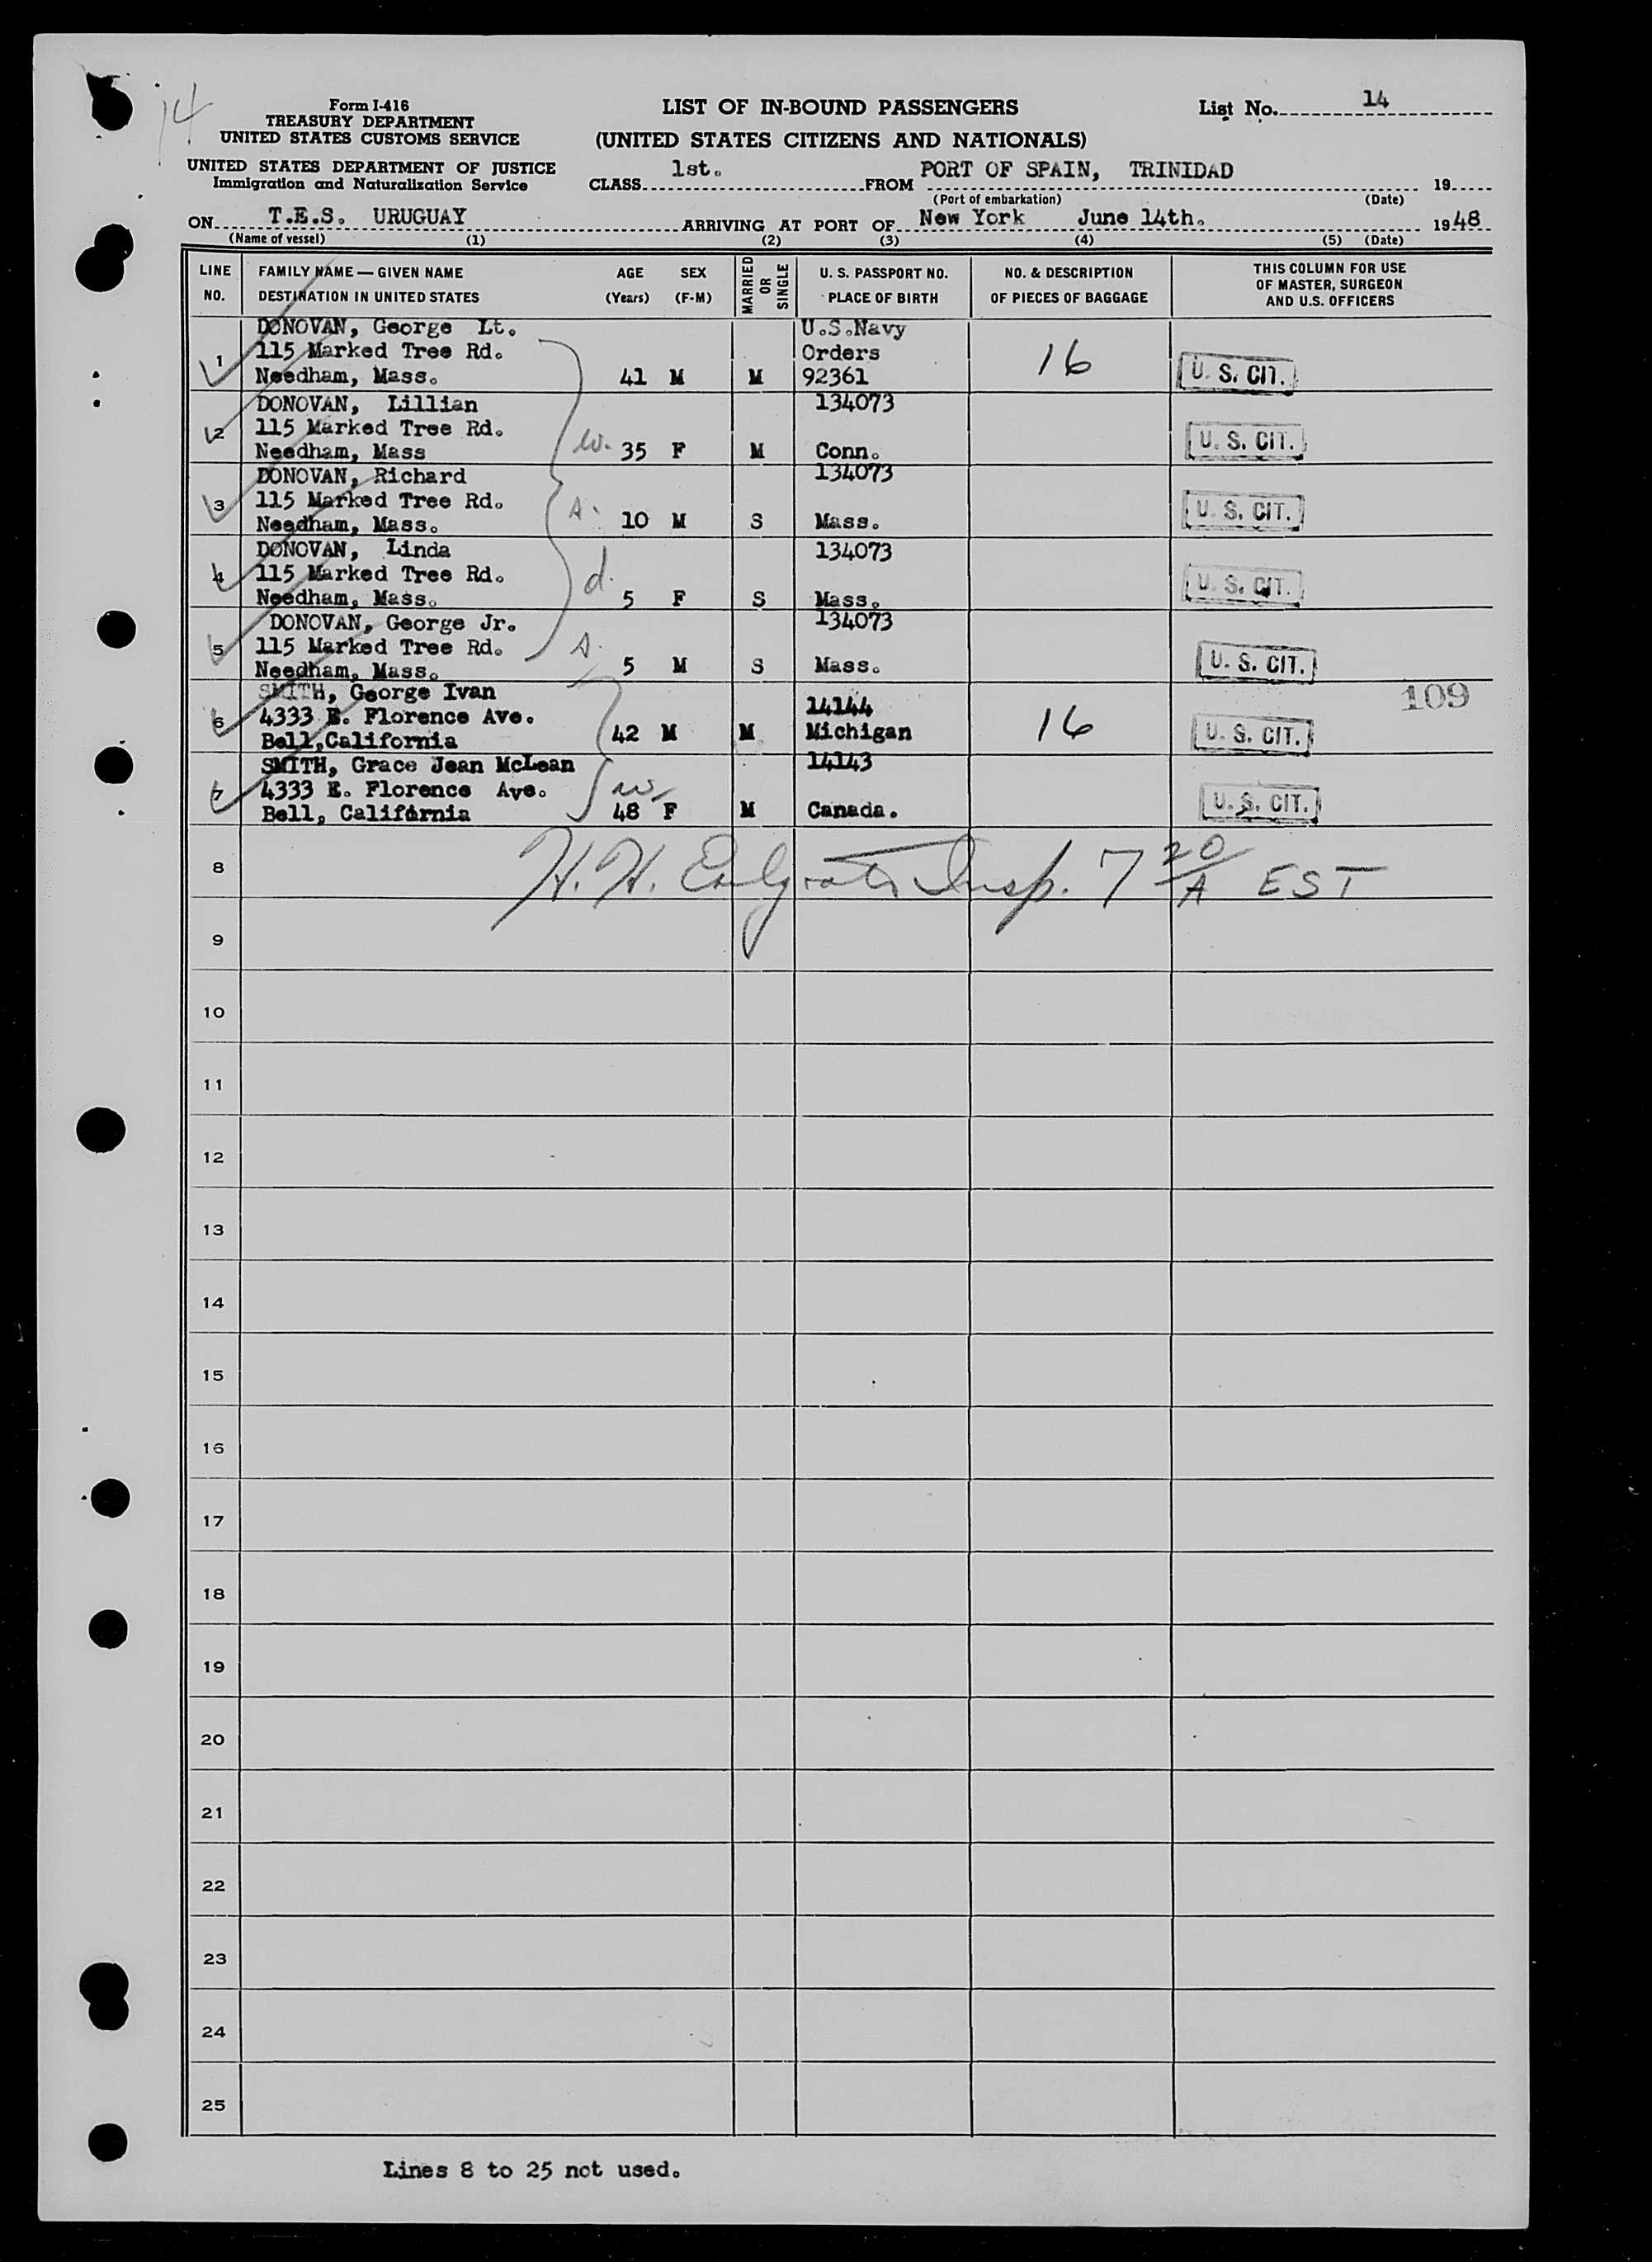 14
Form I-416
TREASURY DEPARTMENT
UNITED STATES CUSTOMS SERVICE
UNITED STATES DEPARTMENT OF JUSTICE
Immigration and Naturalization Service
LIST OF IN-BOUND PASSENGERS
(UNITED STATES CITIZENS AND NATIONALS)
List No. 14
CLASS 1st. FROM PORT OF SPAIN, TRINIDAD 19
(Port of embarkation) (Date)
ON T.E.S. URUGUAY ARRIVING AT PORT OF New York June 14th. 1948
(Name of vessel) (1) (2) (3) (4) (5) (Date)
LINE NO.
FAMILY NAME — GIVEN NAME
DESTINATION IN UNITED STATES
AGE (Years)
SEX (F-M)
MARRIED OR SINGLE
U. S. PASSPORT NO.
PLACE OF BIRTH
NO. & DESCRIPTION
OF PIECES OF BAGGAGE
THIS COLUMN FOR USE
OF MASTER, SURGEON
AND U.S. OFFICERS
DONOVAN, George Lt. U.S.Navy
1 115 Marked Tree Rd. Orders 16
Needham, Mass. 41 M M 92361 U. S. CIT.
DONOVAN, Lillian 134073
2 115 Marked Tree Rd. U. S. CIT.
Needham, Mass w. 35 F M Conn.
DONOVAN, Richard 134073
3 115 Marked Tree Rd. U. S. CIT.
Needham, Mass. s. 10 M S Mass.
DONOVAN, Linda 134073
4 115 Marked Tree Rd. d. U. S. CIT.
Needham, Mass. 5 F S Mass.
DONOVAN, George Jr. 134073
5 115 Marked Tree Rd. s. U. S. CIT.
Needham, Mass. 5 M S Mass.
SMITH, George Ivan 14144 109
6 4333 E. Florence Ave. 16
Bell,California 42 M M Michigan U. S. CIT.
SMITH, Grace Jean McLean 14143
7 4333 E. Florence Ave. w U. S. CIT.
Bell, California 48 F M Canada.
8 H. H. Insp. 7 20/A EST
9
10
11
12
13
14
15
16
17
18
19
20
21
22
23
24
25
Lines 8 to 25 not used.